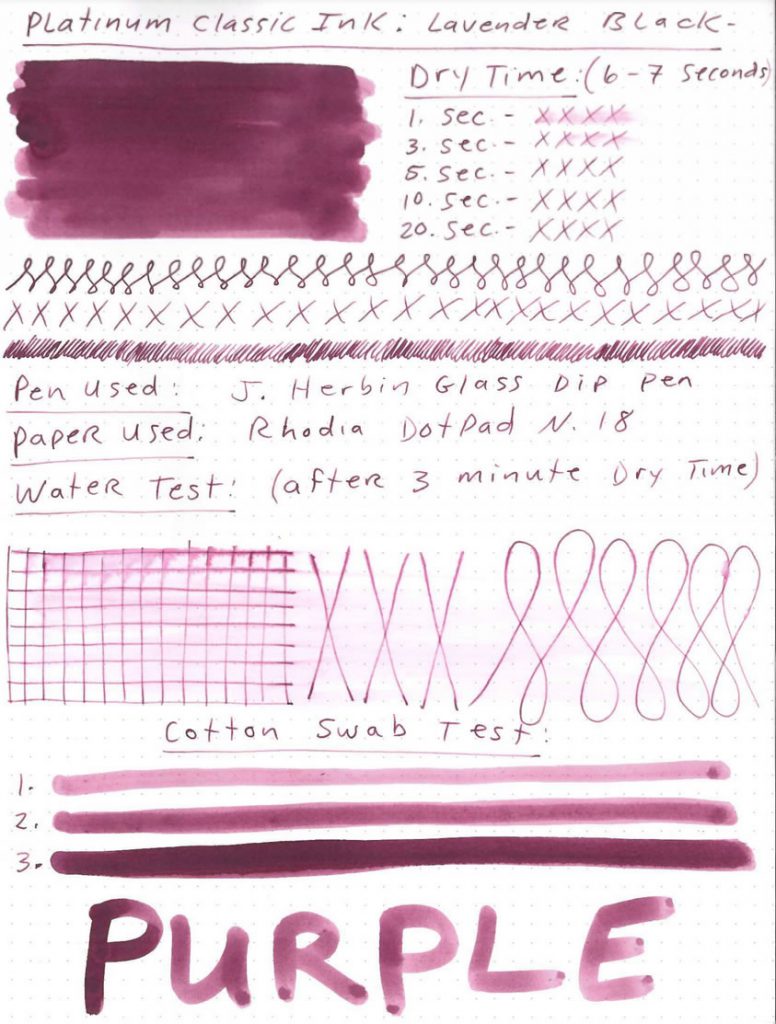 Platinum Classic Ink: Lavender Black-
Dry Time: (6-7 seconds)
1. sec. - XXXX
3. sec. - XXXX
5. sec. - XXXX
10. sec. - XXXX
20. sec. - XXXX
Pen used: J. Herbin Glass Dip Pen
Paper used: Rhodia DotPad N. 18
Water Test: (after 3 minute Dry Time)
Cotton Swab Test:
1.
2.
3.
PURPLE